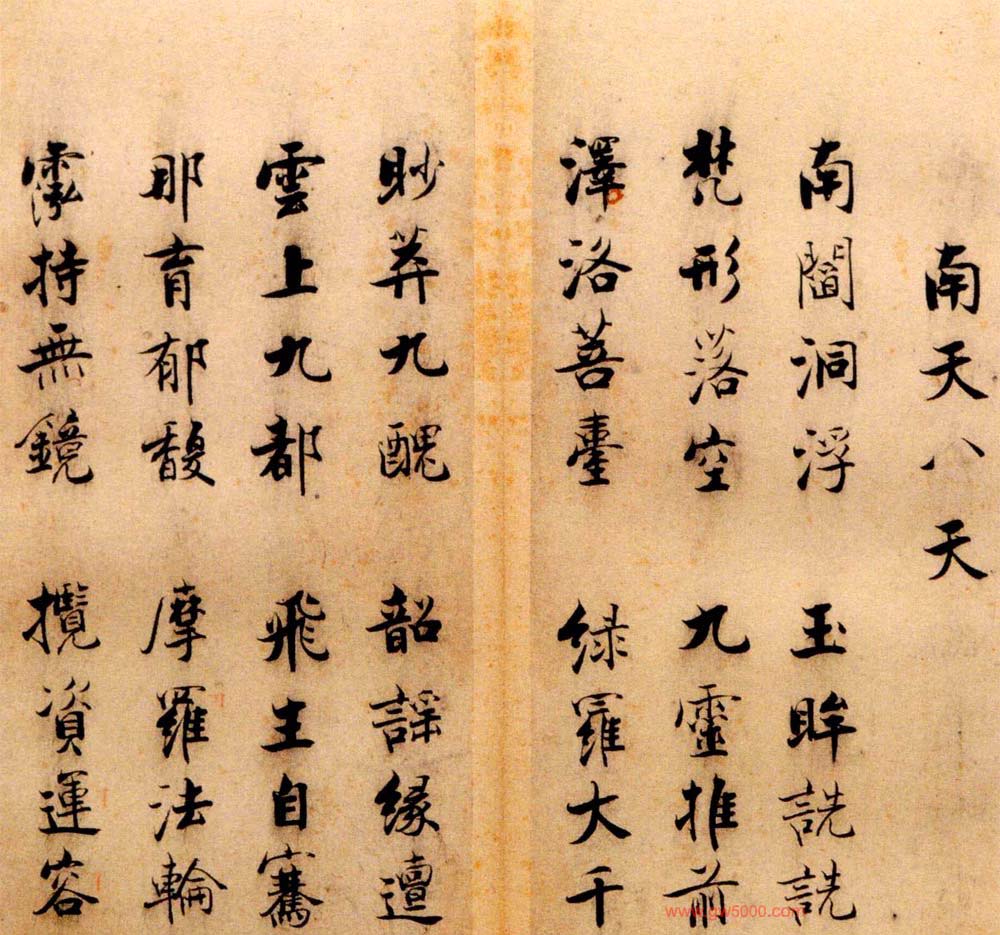 南天八天
南閻洞浮 玉眸詵詵
梵形落空 九靈推前
澤洛菩臺 綠羅大千
眇莽九醜 韶謠緣邅
雲上九都 飛生自騫
那育郁馥 摩羅法輪
霐持無鏡 攬資運容
www.gw5000.com